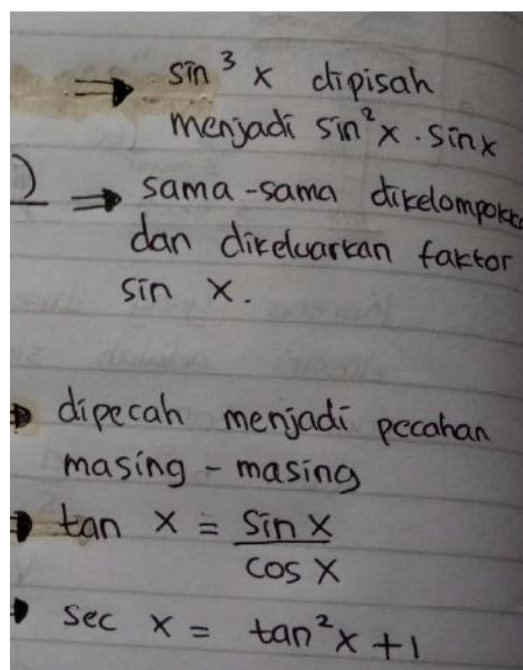 ⇒ sin³ x dipisah
menjadi sin²x . sinx
) ⇒ sama-sama dikelompokka
dan dikeluarkan faktor
sin x.
dipecah menjadi pecahan
masing - masing
tan x = sin x / cos x
sec x = tan²x + 1